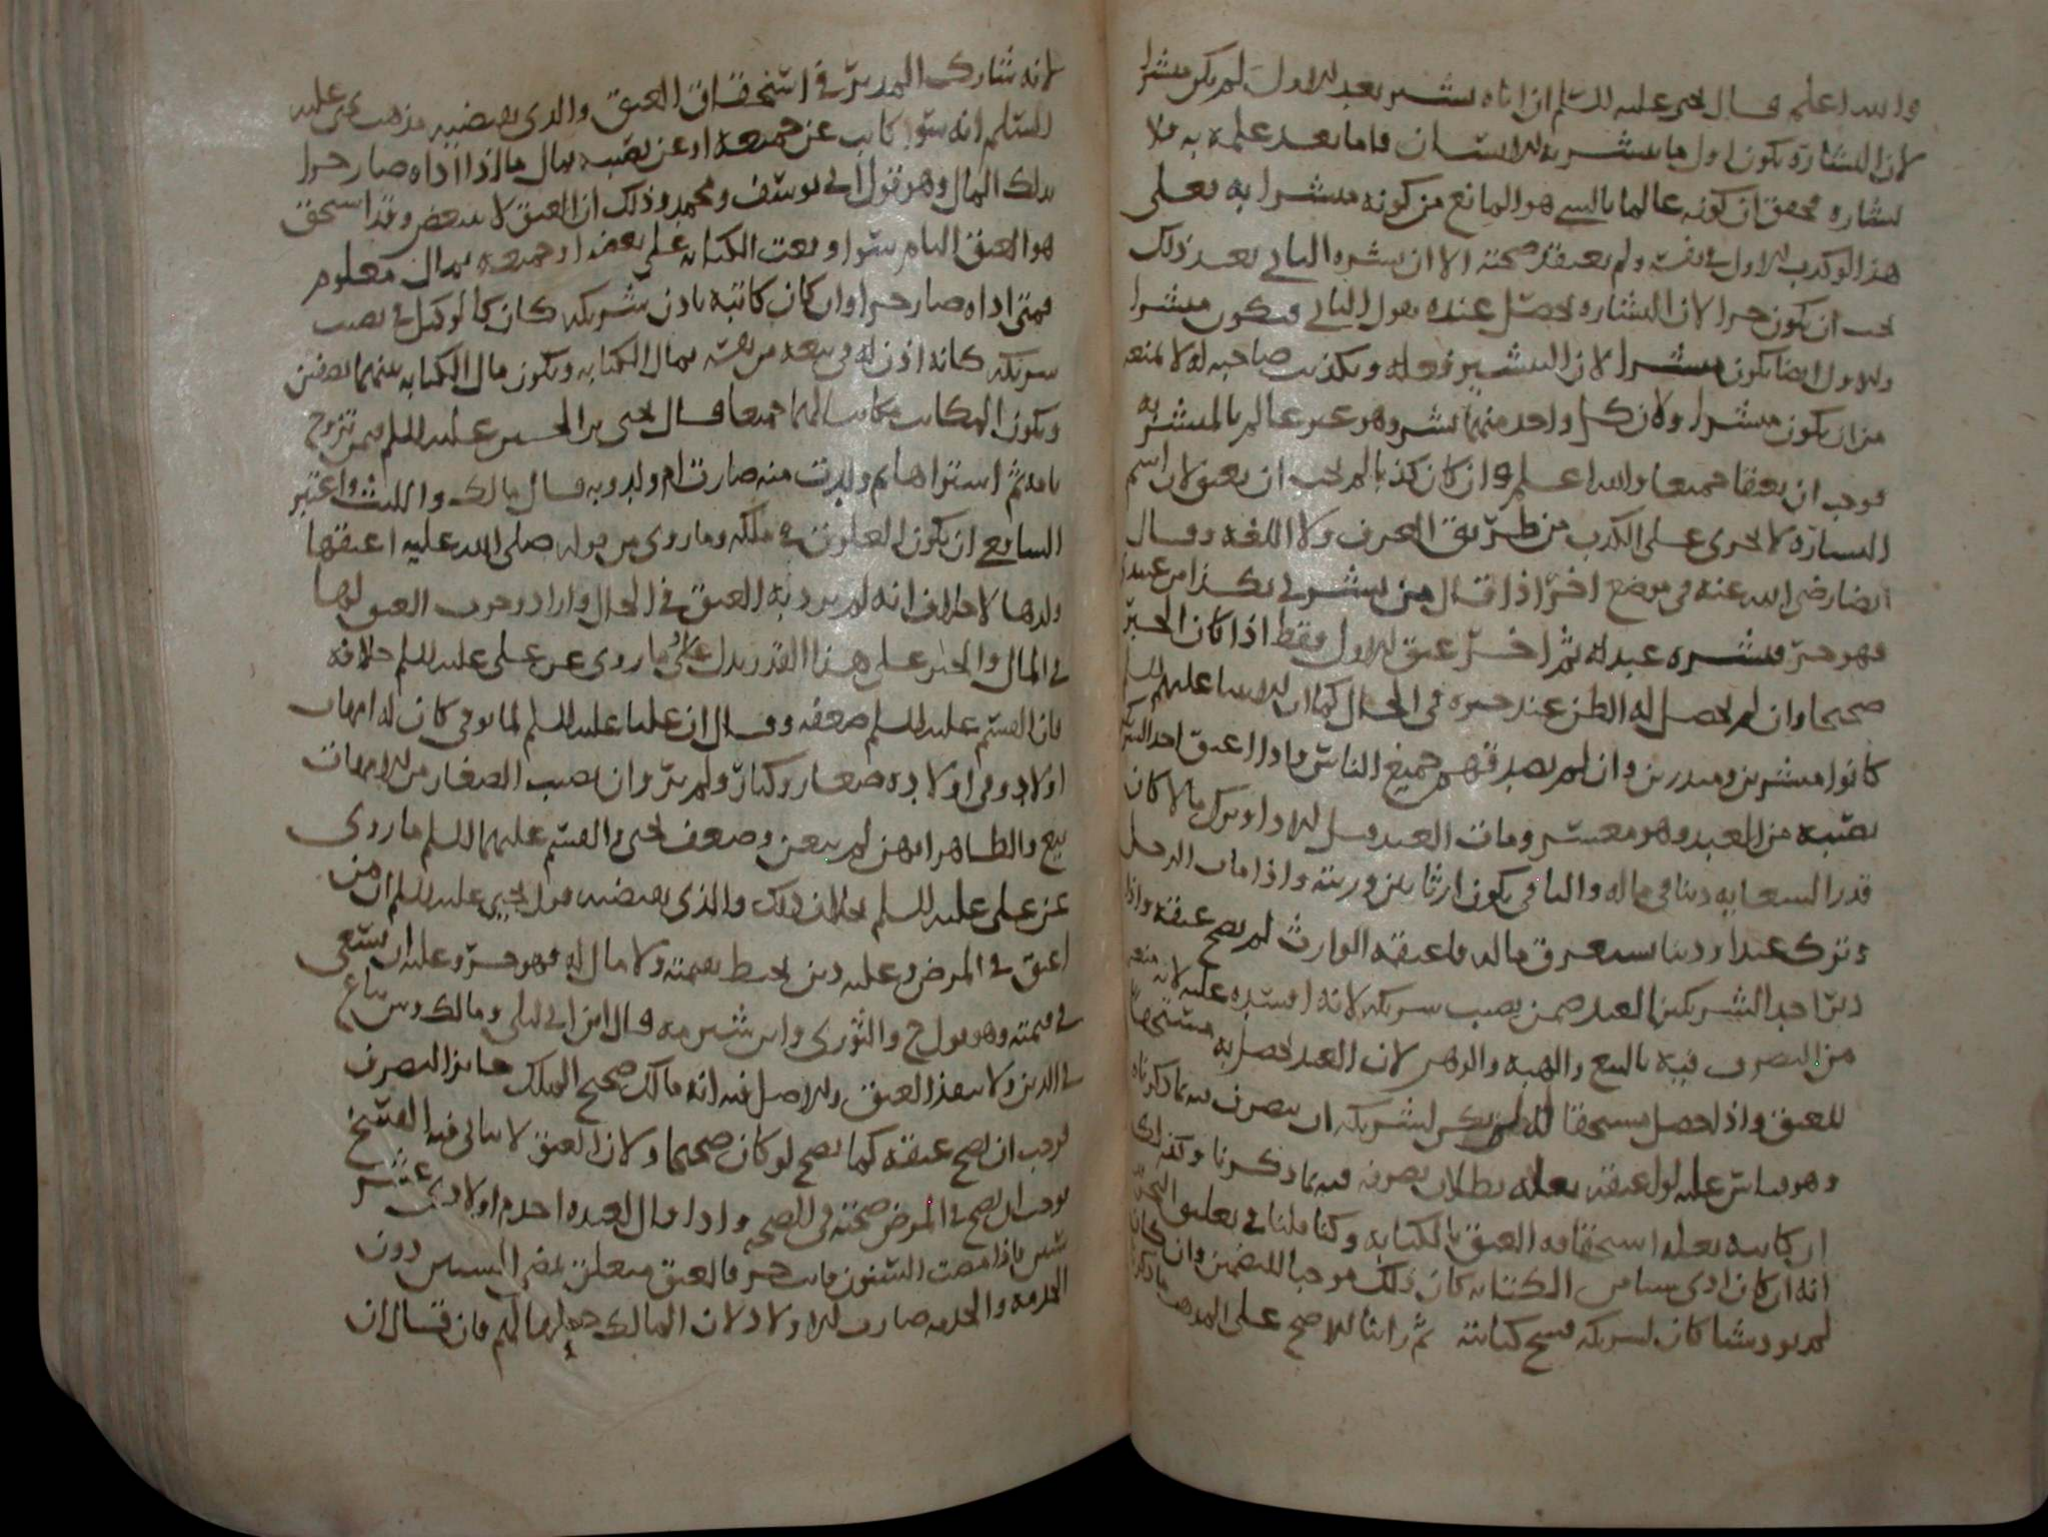 والله اعلم قال يحيى عليه السلم ان اتاه بشير بعد الاول لم يكن مبشرا
لان البشارة يكون اول ما يبشر به الانسان فاما بعد علمه به فلا
بشاره محقق ان كونه عالما بالشي هو المانع من كونه مبشرا به فعلى
هذا لو كذب الاول في نفسه ولم يعتقد صحته الا ان بشره الثاني بعد ذلك
يجب ان يكون حرا لان البشاره تحصل عنده بقول الثاني فيكون مبشرا
والاول ايضا يكون مبشرا لان التبشير فعله وتكذيب صاحبه له لا يمنعه
من ان يكون مبشرا ولان كل واحد منهما بشر وهو غير عالم بالمبشر به
فوجب ان يعتقا جميعا والله اعلم وان كان كذبا لم يجب ان يعتق لان اسم
البشارة لا يجرى على الكذب من طريق العرف ولا اللغه وقال
ايضا رضى الله عنه في موضع اخر اذا قال من بشرني بكذا من عبيدي
فهو حر فبشره عبد له ثم اخر عتق الاول فقط اذا كان الخبر
صحيحا وان لم يحصل له الظن عند خبره في الحال كما ان الانبيا عليهم السلم
كانوا مبشرين ومنذرين وان لم يصدقهم جميع الناس واذا اعتق احد الشركا
نصيبه من العبد وهو معسر ومات العبد قبل الادا وترك مالا كان
قدر السعايه دينا في ماله والباقي يكون ارثا بين ورثته واذا مات الرجل
وترك عبدا ودينا يستغرق ماله فاعتقه الوارث لم يصح عتقه واذا
دبر احد الشريكين العبد ضمن نصيب شريكه لانه افسده عليه لانه منعه
من التصرف فيه بالبيع والهبه والرهن لان العبد حصل به مستحقا
للعتق واذا حصل مستحقا له لم يكن لشريكه ان يتصرف فيه بما ذكرناه
وهو قياس عليه لو اعتقه بعله بطلان تصرفه فيه بما ذكرنا وكذلك
ان كاتبه بعله استحقاقه العتق بالكتابه وكنا قلنا في تعليق
انه ان كان ادى شيا من الكتابه كان ذلك موجبا للتضمين وان كان
لم يود شيا كان لشريكه فسخ كتابته ثم راينا الاصح على المذهب ما ذكرنا
لانه شارك المدبر في استحقاق العتق والذي يقتضيه مذهب يحيى عليه
السلم انه سوا كاتب عن جميعه او عن نصيبه بمال ما اذا اداه صار حرا
بذلك المال وهو قول ابي يوسف ومحمد وذلك ان العتق لا يتبعض وقد استحق
هو العتق التام سوا وقعت الكتابه على بعضه او جميعه بمال معلوم
فمتى اداه صار حرا وان كان كاتبه باذن شريكه كان كالوكيل في نصيب
شريكه كانه اذن له في بيعه من نفسه بمال الكتابه ويكون مال الكتابه بينهما نصفين
ويكون المكاتب مكاتبا لهما جميعا قال يحيى بن الحسين عليه السلم فيمن تزوج
بامة ثم اشتراها ثم ولدت منه صارت ام ولد وبه قال مالك والليث واعتبر
الشافعي ان يكون العلوق في ملكه وما روي من قوله صلى الله عليه اعتقها
ولدها لا خلاف انه لم يرد به العتق في الحال واراد وجوب العتق لها
في المال والخبر على هذا القدر يدل على ما روى عن علي عليه السلم خلافه
فان القسم عليه السلم ضعفه وقال ان عليا عليه السلم لما توفي كان له امهات
اولاد وفي اولاده صغار وكبار ولم ير وان نصيب الصغار من الامهات
بيع والظاهر انهن لم يبعن وضعف يحيى والقسم عليهما السلم ما روى
عن علي عليه السلم بخلاف ذلك والذي يقتضيه قول يحيى عليه السلم ان من
اعتق في المرض وعليه دين يحيط بقيمته ولا مال له فهو حر وعليه ان يسعى
في قيمته وهو قول ح والثوري وابن شبرمه وقال ابن ابي ليلى ومالك وش يباع
في الدين ولا ينفذ العتق والاصل فيه انه مالك صحيح الملك جايز التصرف
فوجب ان يصح عتقه كما يصح لو كان صحيحا ولان العتق لا يتاتى فيه الفسخ
فوجب ان يصح في المرض صحته في الصحه واذا قال لعبده اخدم اولادي عشر
سنين فاذا مضت السنون فانت حر فالعتق متعلق بمضي السنين دون
الخدمه والخدمه صارت للاولاد لان المالك جعلها لهم فان قال ان